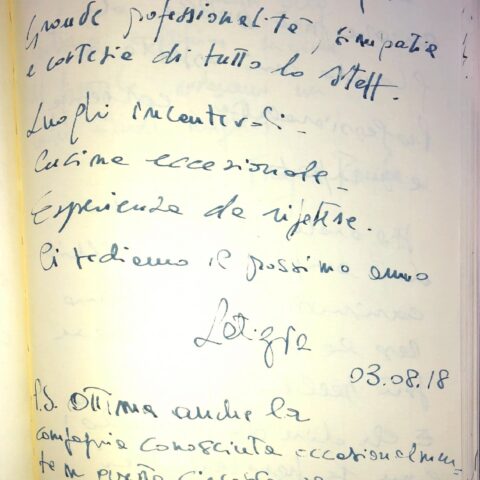 Grande professionalità, simpatia
e cortesia di tutto lo staff.
Luoghi incantevoli -
Cucina eccezionale -
Esperienza da ripetere.
Ci vediamo il prossimo anno
Letizia
03.08.18
P.S. Ottima anche la
compagnia conosciuta occasionalmen-
te in questa